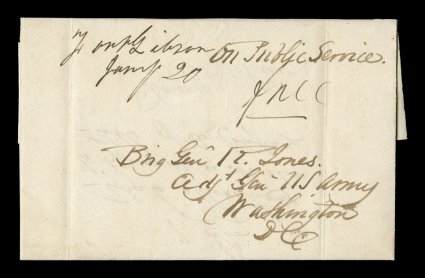 Fort Gibson
Jany 20
On Public Service.
Brig Genl R. Jones.
Adjt Genl US Army
Washington
D C